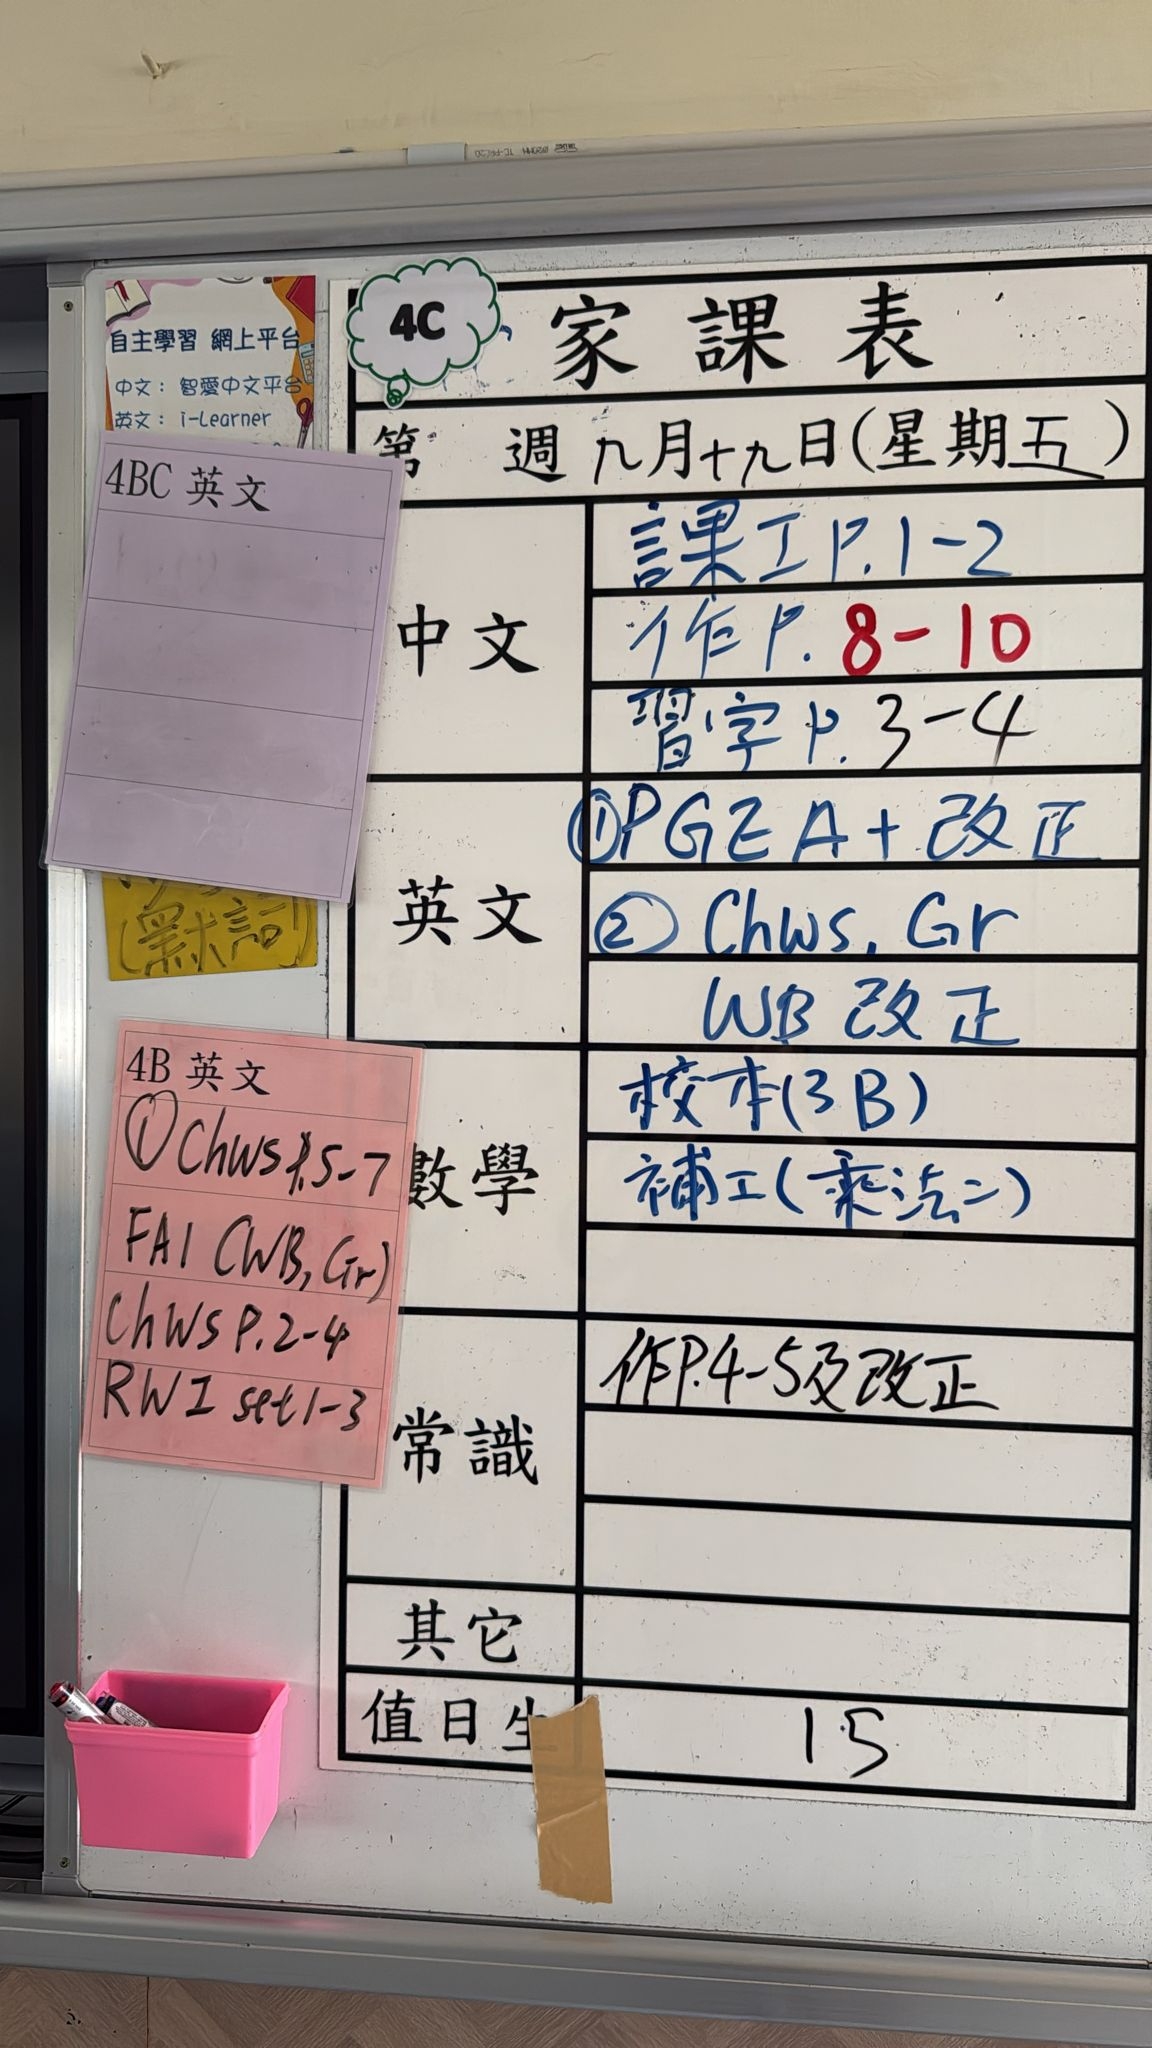 4C
家課表
第 週 九月十九日(星期五)
中文
課工P.1-2
作P. 8-10
習字P. 3-4
英文
①PGE A + 改正
② Chws, Gr
WB 改正
數學
校本(3B)
補工(乘法二)
常識
作P.4-5及改正
其它
值日生
15
自主學習 網上平台
中文： 智愛中文平台
英文： i-Learner
4BC 英文
(默詞)
4B 英文
① Chws P.5-7
FA1 (WB, Gr)
Chws P.2-4
RWI set 1-3